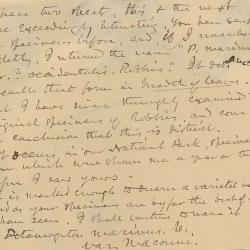 these two sheets, this & the next
are exceedingly interesting. You have sent
specimens before and if I remember
rightly, I returned the name "P. marinus,
var.? occidentalis, Robbins." It does
resemble that form in breadth of leaves
but I have since throughly examined
original specimens of Robbins, and come
conclusion that this is distinct.
It occurs in our National Park, specimens
from which were shown me a year or two
before I saw yours
It is marked enough to deserve a varietal
and as your specimens are by far the best
I have seen, I shall venture to name it
Potamogeton marinus, L.,
var. Macounii.